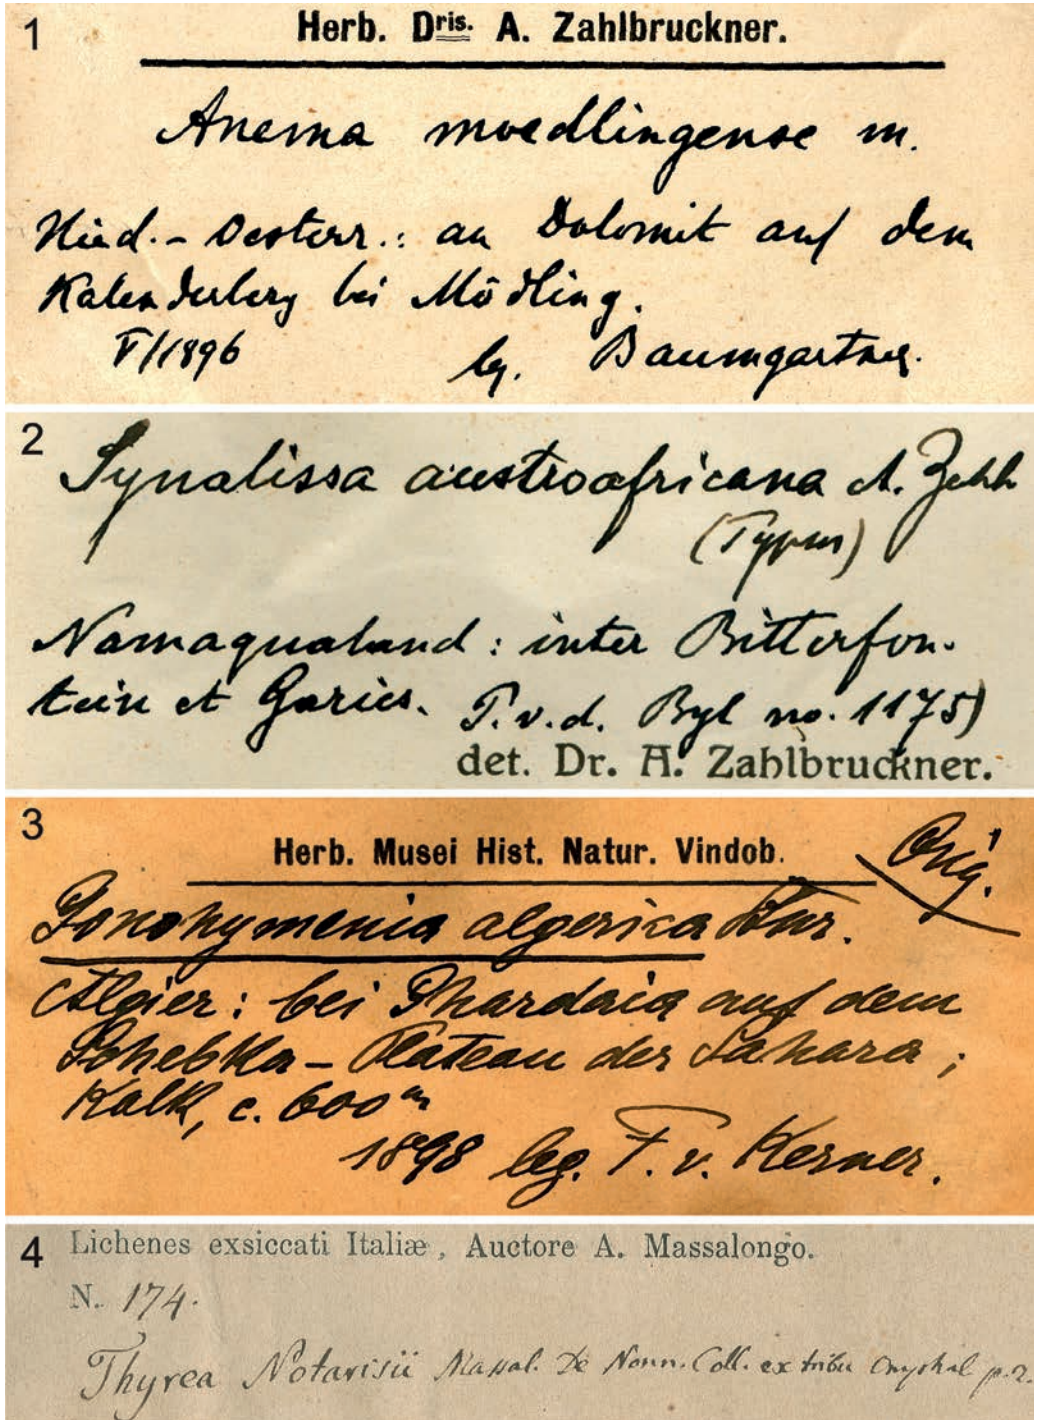 1
Herb. Dris. A. Zahlbruckner.
Anema moedlingense m.
Nied.- Oesterr.: an Dolomit auf dem
Kalenderberg bei Mödling.
V/1896 lg. Baumgartner.
2
Synalissa austroafricana A. Zahlb
(Typus)
Namaqualand: inter Bitterfon-
tein et Garies. P.v.d. Byl no. 1175)
det. Dr. A. Zahlbruckner.
3
Herb. Musei Hist. Natur. Vindob.
Orig.
Gonohymenia algerica Stnr.
Algier: bei Ghardaia auf dem
Schebka-Plateau der Sahara;
Kalk, c. 600m
1898 leg. F. v. Kerner.
4
Lichenes exsiccati Italiæ, Auctore A. Massalongo.
N. 174.
Thyrea Notarisii Massal. De Nonn. Coll. ex tribu p. 2.